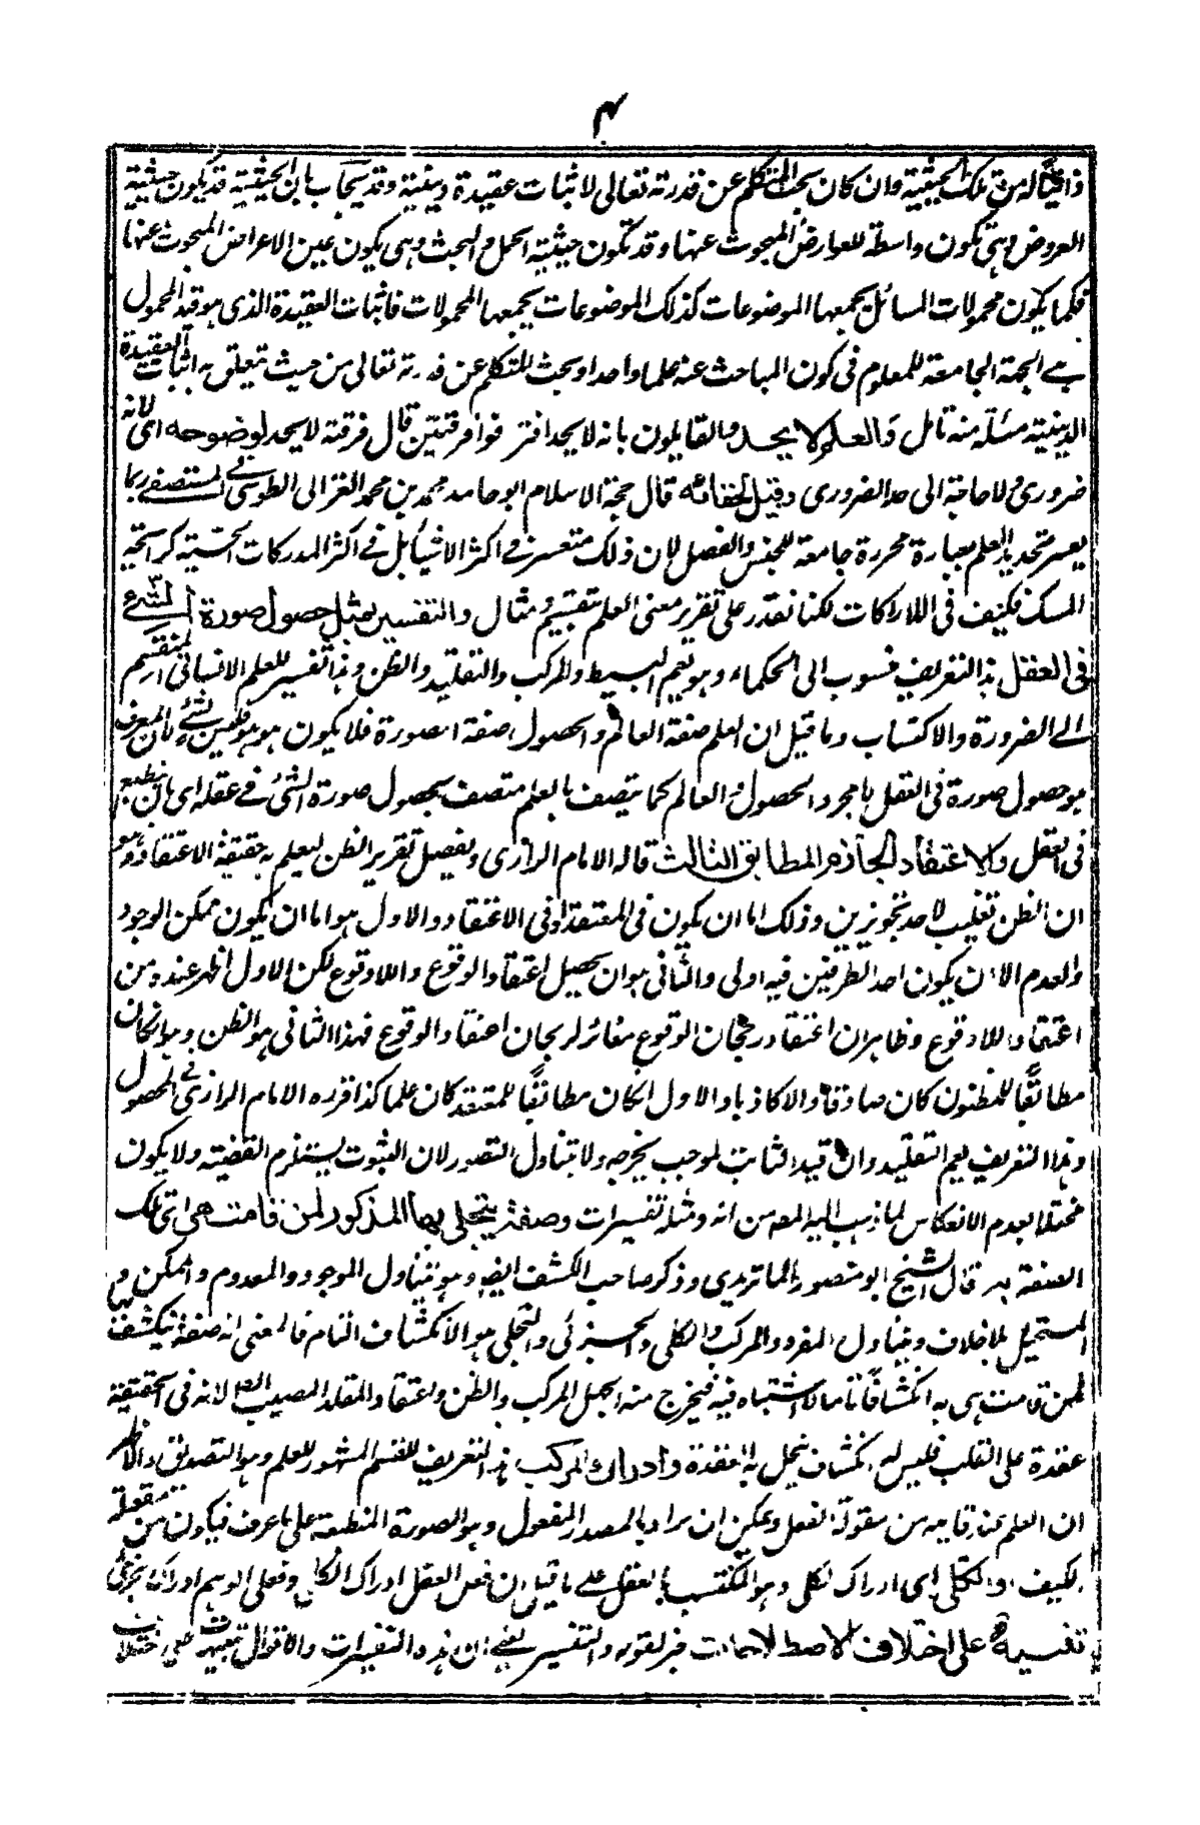 ۴
ذاتيا له من تلك الحيثية وان كان يبحث المتكلم عن قدرته تعالى لاثبات عقيدة دينية وقد يجاب بان الحيثية قد يكون حيثية
العروض وهى تكون واسطة للعوارض المبحوث عنها وقد تكون حيثية الحمل والبحث وهى يكون عين الاعراض المبحوث عنها
فكما يكون محمولات المسائل يجمعها الموضوعات كذلك الموضوعات يجمعها المحمولات فاثبات العقيدة الذى هو قيد المحمول
هى الجهة الجامعة للمعلوم فى كون المباحث عنه علما واحدا وبحث المتكلم عن قدرته تعالى من حيث تتعلق به اثبات العقيدة
الدينية مسئلة منه تامل والعلم لا يحد والقايلون بانه لا يحد افترقوا فرقتين قال فرقة لا يحد لوضوحه اى لانه
ضرورى ولا حاجة الى حد الضرورى وقيل لخفائه قال حجة الاسلام ابو حامد محمد بن محمد الغزالى الطوسى فى المستصفى ربما
يعسر تحديد العلم بعبارة محررة جامعة للجنس والفصل لان ذلك متعسر فى اكثر الاشياء بل فى اكثر المدركات الحسية كرائحة
المسك فكيف فى الادراكات لكنا نقدر على تقرير معنى العلم بتقسيم ومثال والتفسير بمثل حصول صورة الشئ
فى العقل هذا التعريف منسوب الى الحكماء وهو يعم البسيط والمركب والتقليد والظن وهذا تفسير للعلم الانسانى المنقسم
الى الضرورة والاكتساب وما قيل ان العلم صفة العالم والحصول صفة الصورة فلا يكون هو هو فليس بشئ لان المعرف
هو حصول صورة فى العقل لا مجرد الحصول والعالم كما يتصف بالعلم متصف بحصول صورة الشئ فى عقله اى بان ينطبع
فى العقل والاعتقاد الجازم المطابق الثالث قاله الامام الرازى وتفصيل تقرير الظن ليعلم به حقيقة الاعتقاد وهو
ان الظن تغليب لاحد تجويزين وذلك اما ان يكون فى المعتقد او فى الاعتقاد والاول هو اما ان يكون ممكن الوجود
والعدم الا ان يكون احد الطرفين فيه اولى والثانى هو ان يحصل اعتقاد الوقوع واللاوقوع لكن الاول اظهر عنده من
اعتقاد اللاوقوع وظاهر ان اعتقاد رجحان الوقوع مغائر لرجحان اعتقاد الوقوع فهذا الثانى هو الظن وهو ان كان
مطابقًا للمظنون كان صادقا والا كاذبا والاول ان كان مطابقًا للمعتقد كان علما كذا قرره الامام الرازى فى المحصول
وهذا التعريف يعم التقليد وان قيد الثابت لموجب يخرجه ولا يتناول التصور لان الثبوت يستلزم القضية ولا يكون
مختلا بعدم الانعكاس لما ذهب اليه المصه من انه ومثله تفسيرات وصفة يتجلى بها المذكور لمن قامت هى اى تلك
الصفة به قال الشيخ ابو منصور الماتريدى وذكر صاحب الكشف ايضا وهو يتناول الموجود والمعدوم والممكن و
المستحيل بلا خلاف ويتناول المفرد والمركب والكلى والجزئى والتجلى هو الانكشاف التام فالمعنى انه صفة ينكشف بها
لمن قامت هى به انكشافًا تاما لا اشتباه فيه فيخرج منه الجهل المركب والظن واعتقاد المقلد المصيب ايضا لانه فى الحقيقة
عقدة على القلب فليس له انكشاف ينحل به العقدة وادراك المركب هذا التعريف للقسم المشهور للعلم وهو التصديق والاظهر
ان العلم عند قايليه من مقولة الفعل ويمكن ان يراد بالمصدر المفعول وهو الصورة المنطبعة على ما عرف فيكون من مقولة
الكيف والكلى اى ادراك الكلى وهو المكتسب بالعقل على ما قيل ان فعل العقل ادراك الكلى وفعل الوهم ادراك الجزئى
تفسيره على اختلاف الاصطلاحات خبر لقوله والتفسير يعنى ان هذه التفسيرات والاقوال تعبيرات على اختلاف